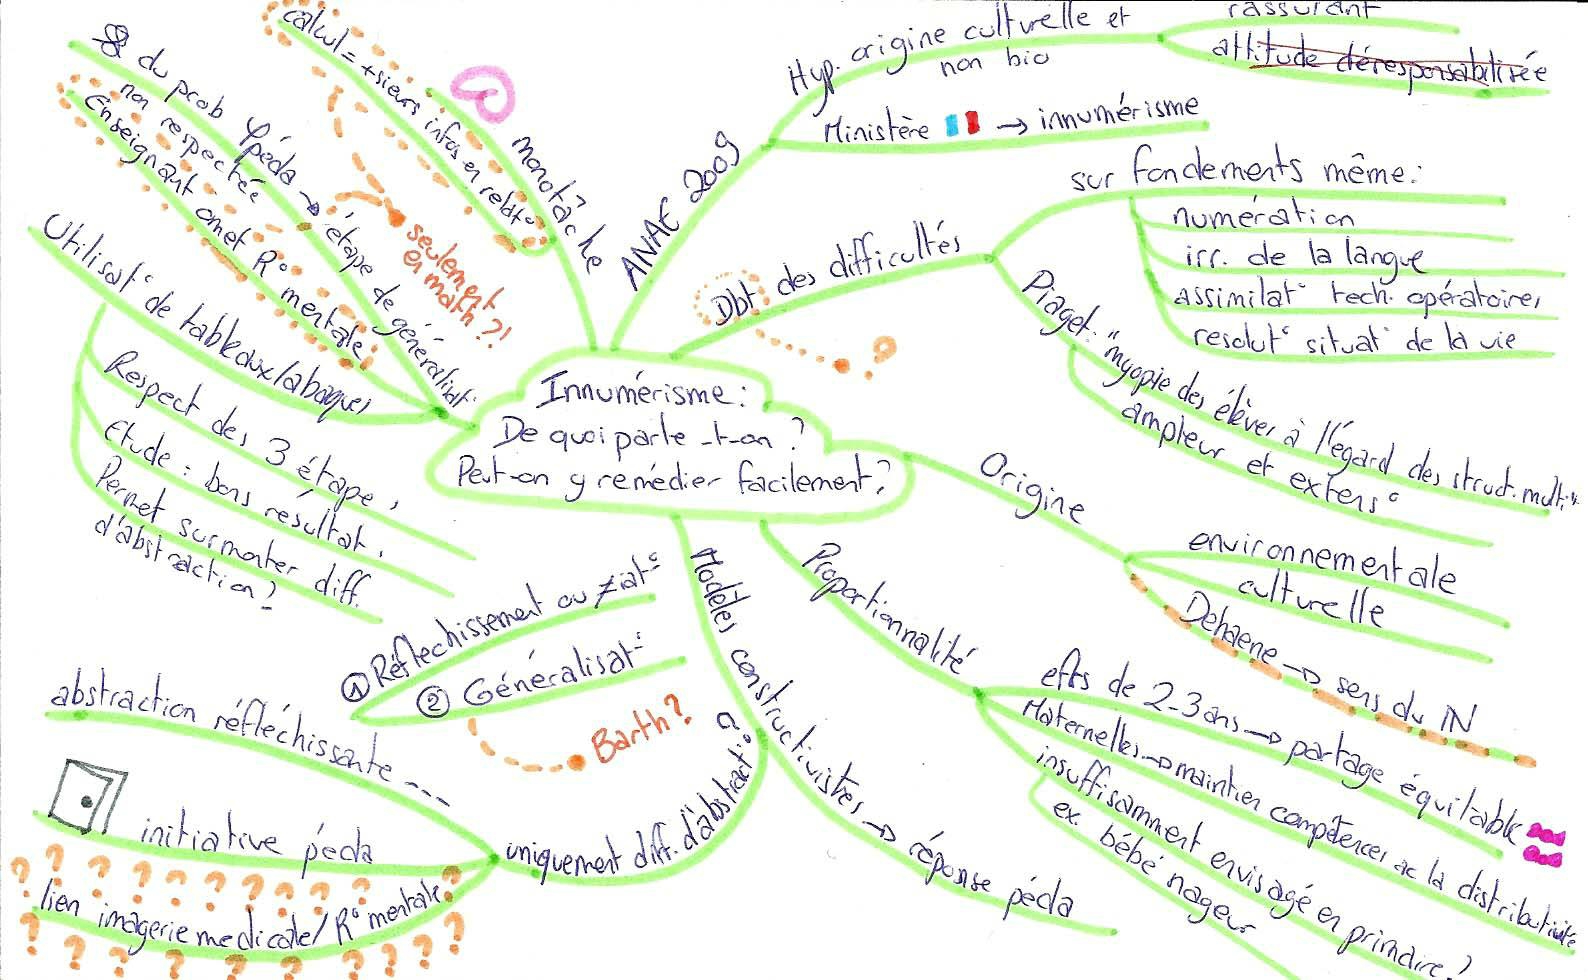 Innumérisme :
De quoi parle-t-on ?
Peut-on y remédier facilement ?
ANAE 2009
Hyp. origine culturelle et
non bio
rassurant
attitude déresponsabilisée
Ministère → innumérisme
Dbt des difficultés
?
sur fondements même :
numération
irr. de la langue
assimilat° tech. opératoires
resolut° situat° de la vie
Piaget : "myopie des élèves à l'égard des struct. multi."
ampleur et extens°
Origine
environnementale
culturelle
Dehaene → sens du IN
Proportionnalité
efts de 2-3 ans → partage équitable
Maternelles → maintien compétences ac la distributivité
insuffisamment envisagé en primaire ?
ex. bébé nageur
Modèles constructivistes → réponse péda
uniquement diff. d'abstract°
① Réfléchissement ou ≠iat°
② Généralisat°
Barth ?
abstraction réfléchissante ---
initiative péda
lien imagerie medicale / R° mentale
? ? ? ? ? ? ? ? ?
? ? ? ? ? ? ? ?
Utilisat° de tableaux/abaques
Respect des 3 étapes
Etude : bons résultat.
Permet surmonter diff.
d'abstraction ?
du prob φ péda → étape de généralisat°
non respectée
Enseignant omet R° mentale
calcul = +sieurs infos en relat°
seulement
en math ?!
monotâche